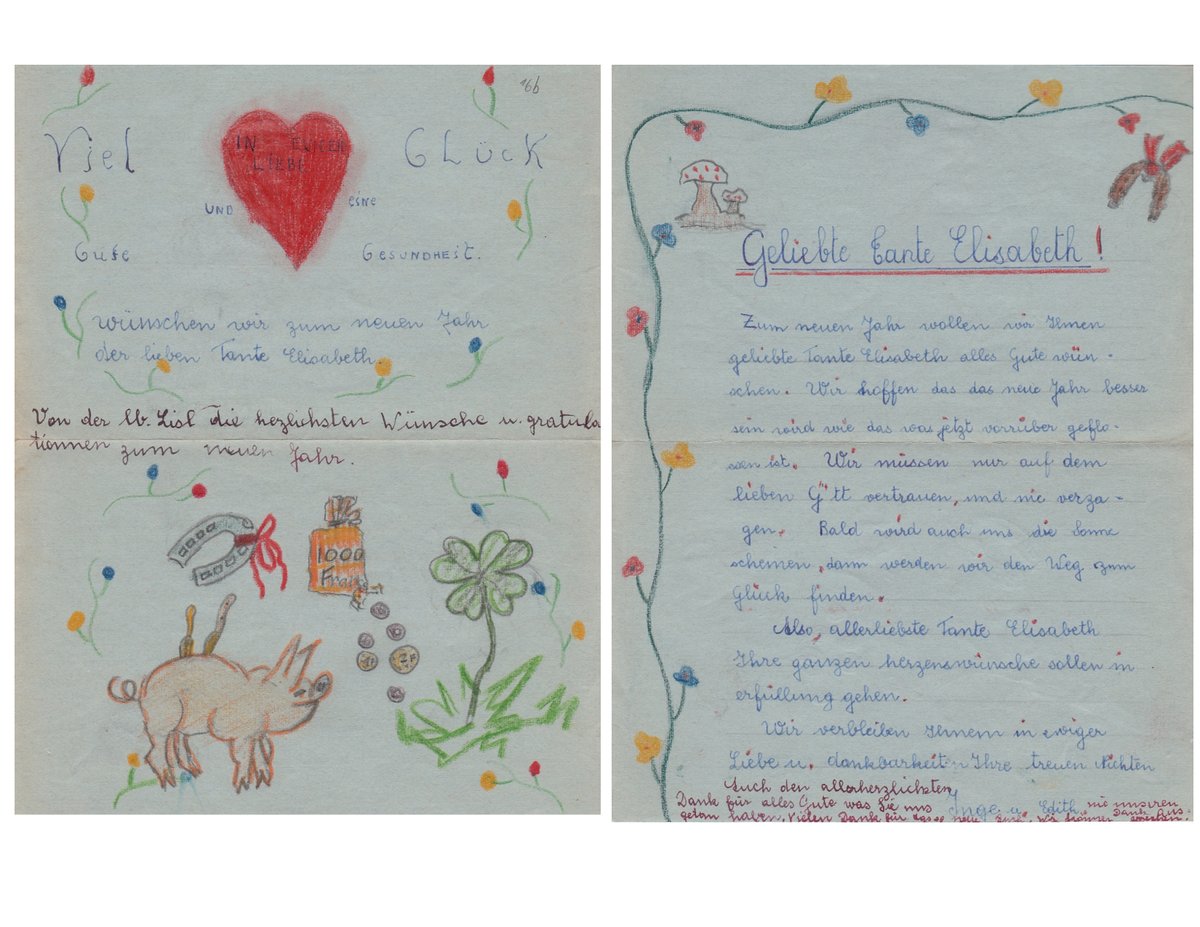 16b
Viel GLücK
IN EWIGER
LIEBE
UND eine
Gute GESUNDHEIT.
wünschen wir zum neuen Jahr
der lieben Tante Elisabeth.
Von der lb. Lisl die hezlichsten Wünsche u. gratula
tionnen zum neuen Jahr.
1000
Frank
Geliebte Tante Elisabeth!
Zum neuen Jahr wollen wir Ihnen
geliebte Tante Elisabeth alles Gute wün-
schen. Wir hoffen das das neue Jahr besser
sein wird wie das was jetzt vorrüber geflo-
ssen ist. Wir müssen nur auf dem
lieben G'tt vertrauen, und nie verza-
gen. Bald wird auch uns die Sonne
scheinen, dann werden wir den Weg zum
Glück finden.
Also, allerliebste Tante Elisabeth
Ihre ganzen herzenswünsche sollen in
erfüllung gehen.
Wir verbleiben Ihnem in ewiger
Liebe u. dankbarkeit Ihre treuen Nichten
Inge u. Edith
Auch den allerherzlichsten
Dank für alles Gute was Sie uns
getan haben, Vielen Dank für das
nie unseren
Dank aus-